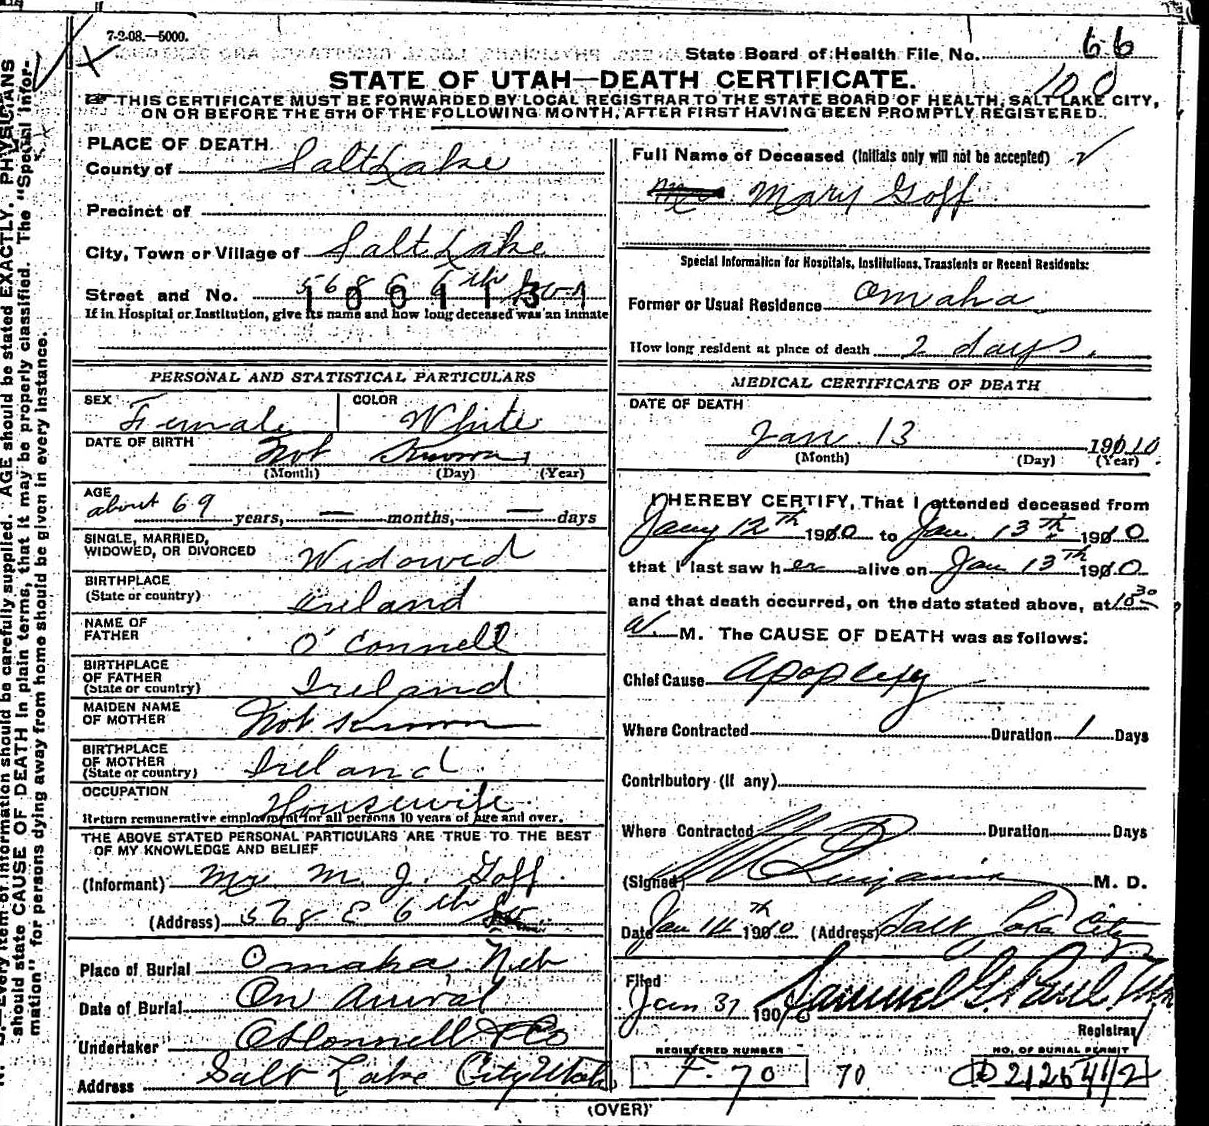 7-2-08.—5000.
State Board of Health File No. 66
100
STATE OF UTAH—DEATH CERTIFICATE.
THIS CERTIFICATE MUST BE FORWARDED BY LOCAL REGISTRAR TO THE STATE BOARD OF HEALTH, SALT LAKE CITY,
ON OR BEFORE THE 5TH OF THE FOLLOWING MONTH, AFTER FIRST HAVING BEEN PROMPTLY REGISTERED.
PLACE OF DEATH
County of Salt Lake
Precinct of
City, Town or Village of Salt Lake
Street and No. 568 E 6th
1004131
If in Hospital or Institution, give its name and how long deceased was an inmate
Full Name of Deceased (Initials only will not be accepted)
Mary Goff
Special Information for Hospitals, Institutions, Transients or Recent Residents:
Former or Usual Residence Omaha
How long resident at place of death 2 days.
PERSONAL AND STATISTICAL PARTICULARS
SEX Female COLOR White
DATE OF BIRTH Not Known
(Month) (Day) (Year)
AGE about 69 years, — months, — days
SINGLE, MARRIED,
WIDOWED, OR DIVORCED Widowed
BIRTHPLACE
(State or country) Ireland
NAME OF
FATHER O'Connell
BIRTHPLACE
OF FATHER
(State or country) Ireland
MAIDEN NAME
OF MOTHER Not Known
BIRTHPLACE
OF MOTHER
(State or country) Ireland
OCCUPATION Housewife
Return remunerative employment for all persons 10 years of age and over.
THE ABOVE STATED PERSONAL PARTICULARS ARE TRUE TO THE BEST
OF MY KNOWLEDGE AND BELIEF
(Informant) M. J. Goff
(Address) 568 E 6th
Place of Burial Omaha, Neb
Date of Burial On Arrival
Undertaker O'Donnell & Co
Address Salt Lake City Utah
MEDICAL CERTIFICATE OF DEATH
DATE OF DEATH
Jan 13 1910
(Month) (Day) (Year)
I HEREBY CERTIFY, That I attended deceased from
Jany 12th 1910 to Jan. 13th 1910
that I last saw her alive on Jan 13th 1910
and that death occurred, on the date stated above, at 10 30
a. M. The CAUSE OF DEATH was as follows:
Chief Cause Apoplexy
Where Contracted Duration 1 Days
Contributory (if any)
Where Contracted Duration Days
(Signed) M. D.
Date Jan 14th 1910 (Address) Salt Lake City
Filed
Jan 31 190 Samuel G. Paul
Registrar
REGISTERED NUMBER
F. 70
70
NO. OF BURIAL PERMIT
D 21254 1/2
(OVER)
should state CAUSE OF DEATH in plain terms, that it may be properly classified. The "Special Infor-
mation" for persons dying away from home should be given in every instance.